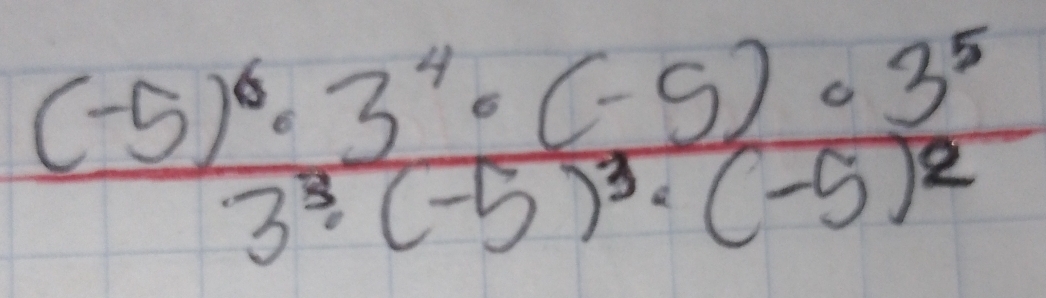 (-5)⁶ · 3⁴ · (-5) · 3⁵
3³ · (-5)³ · (-5)²